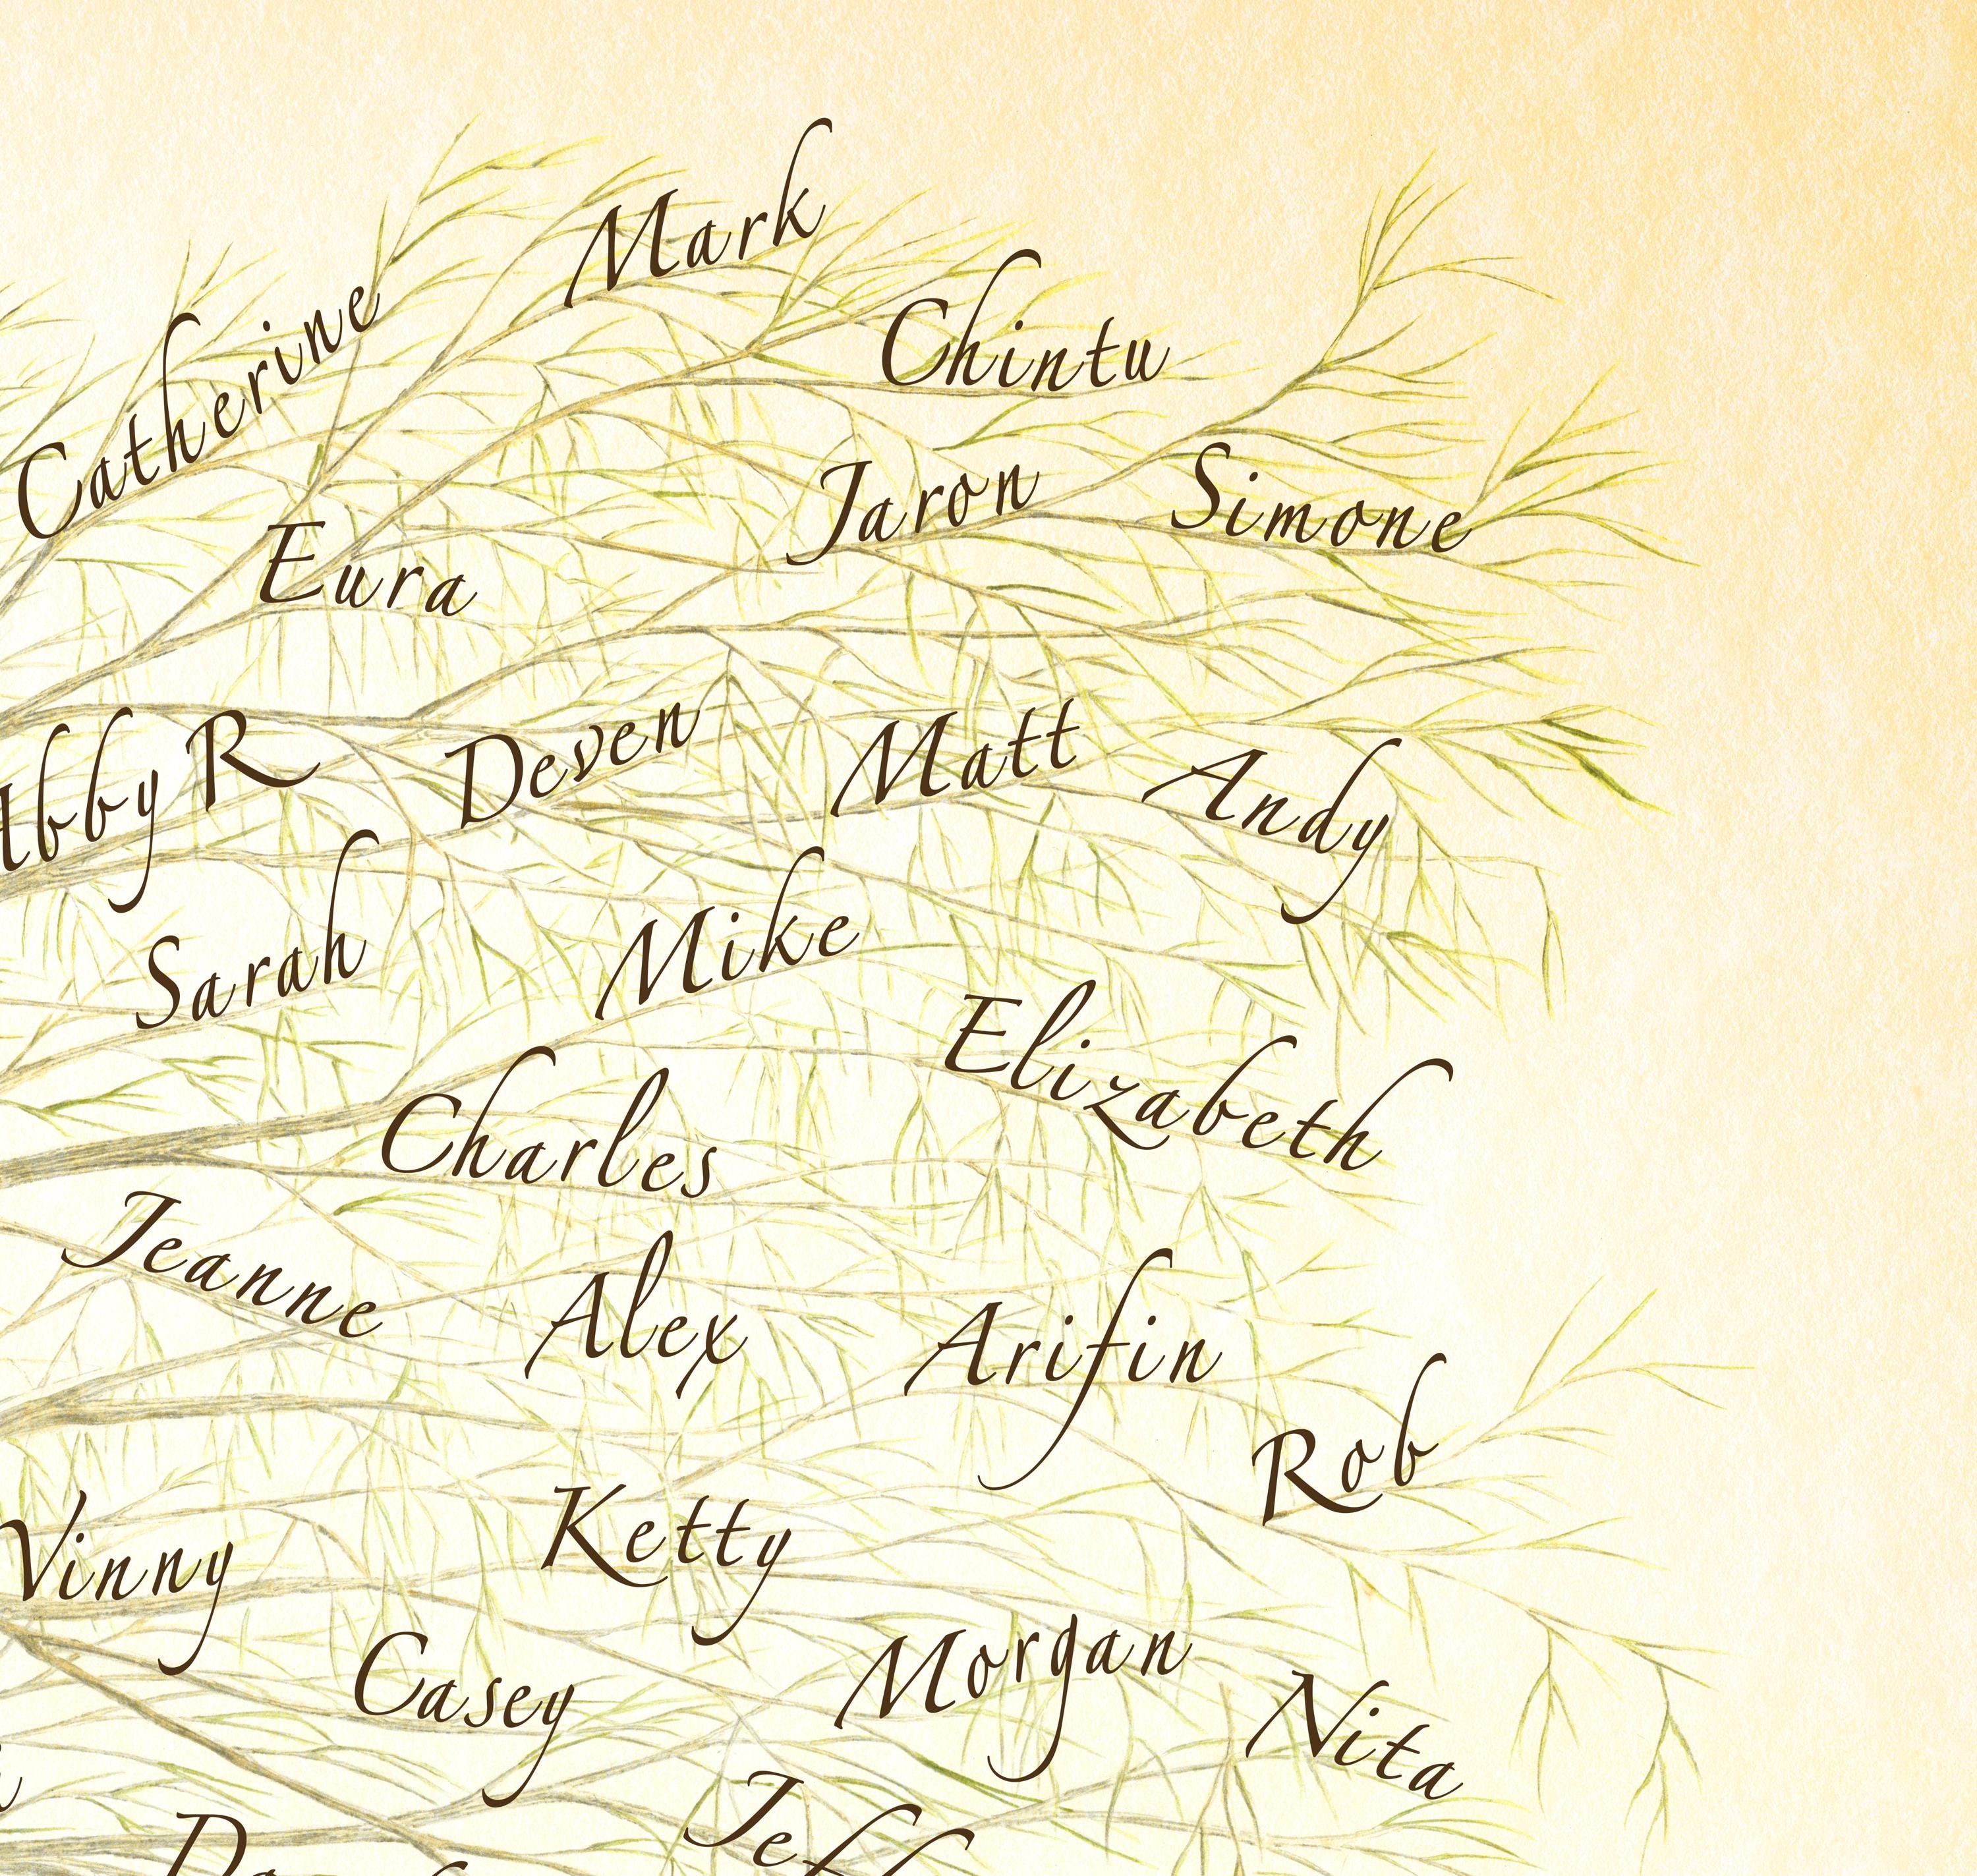 Mark
Chintu
Catherine
Jaron
Simone
Eura
bby R
Deven
Matt
Andy
Sarah
Mike
Elizabeth
Charles
Jeanne
Alex
Arifin
Rob
Vinny
Ketty
Casey
Morgan
Nita
Jeff